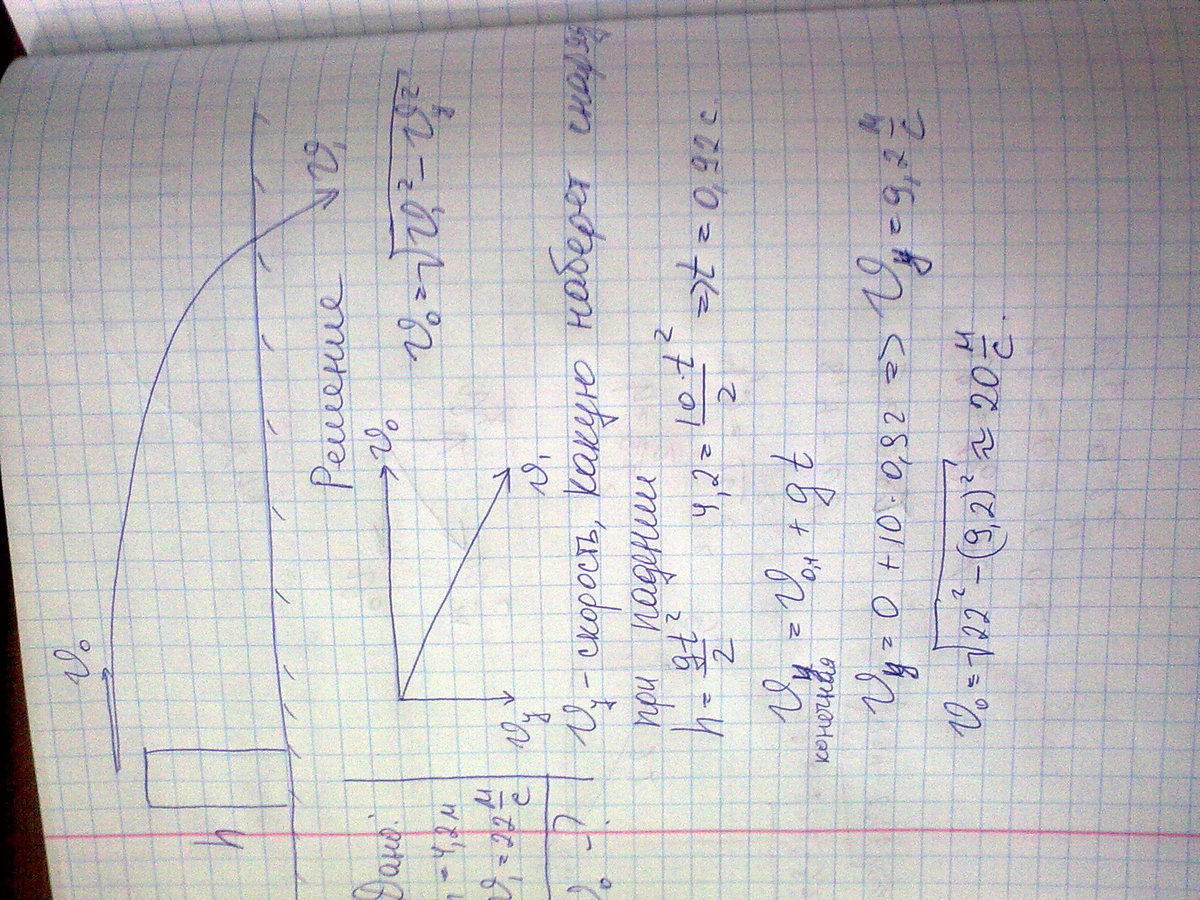 v₀
h
v₁
Дано:
h = 4,2 м
v₁ = 22 м/с
v₀ - ?
Решение
v₀
v₁
v_y
v₀ = √(v₁² - v_y²)
v_y - скорость, какую наберет снаряд
при падении
h = gt²/2 4,2 = 10·t²/2 => t = 0,92 с.
v_y конечная = v₀,ч + gt
v_y = 0 + 10·0,92 => v_y = 9,2 м/с
v₀ = √(22² - (9,2)²) ≈ 20 м/с.